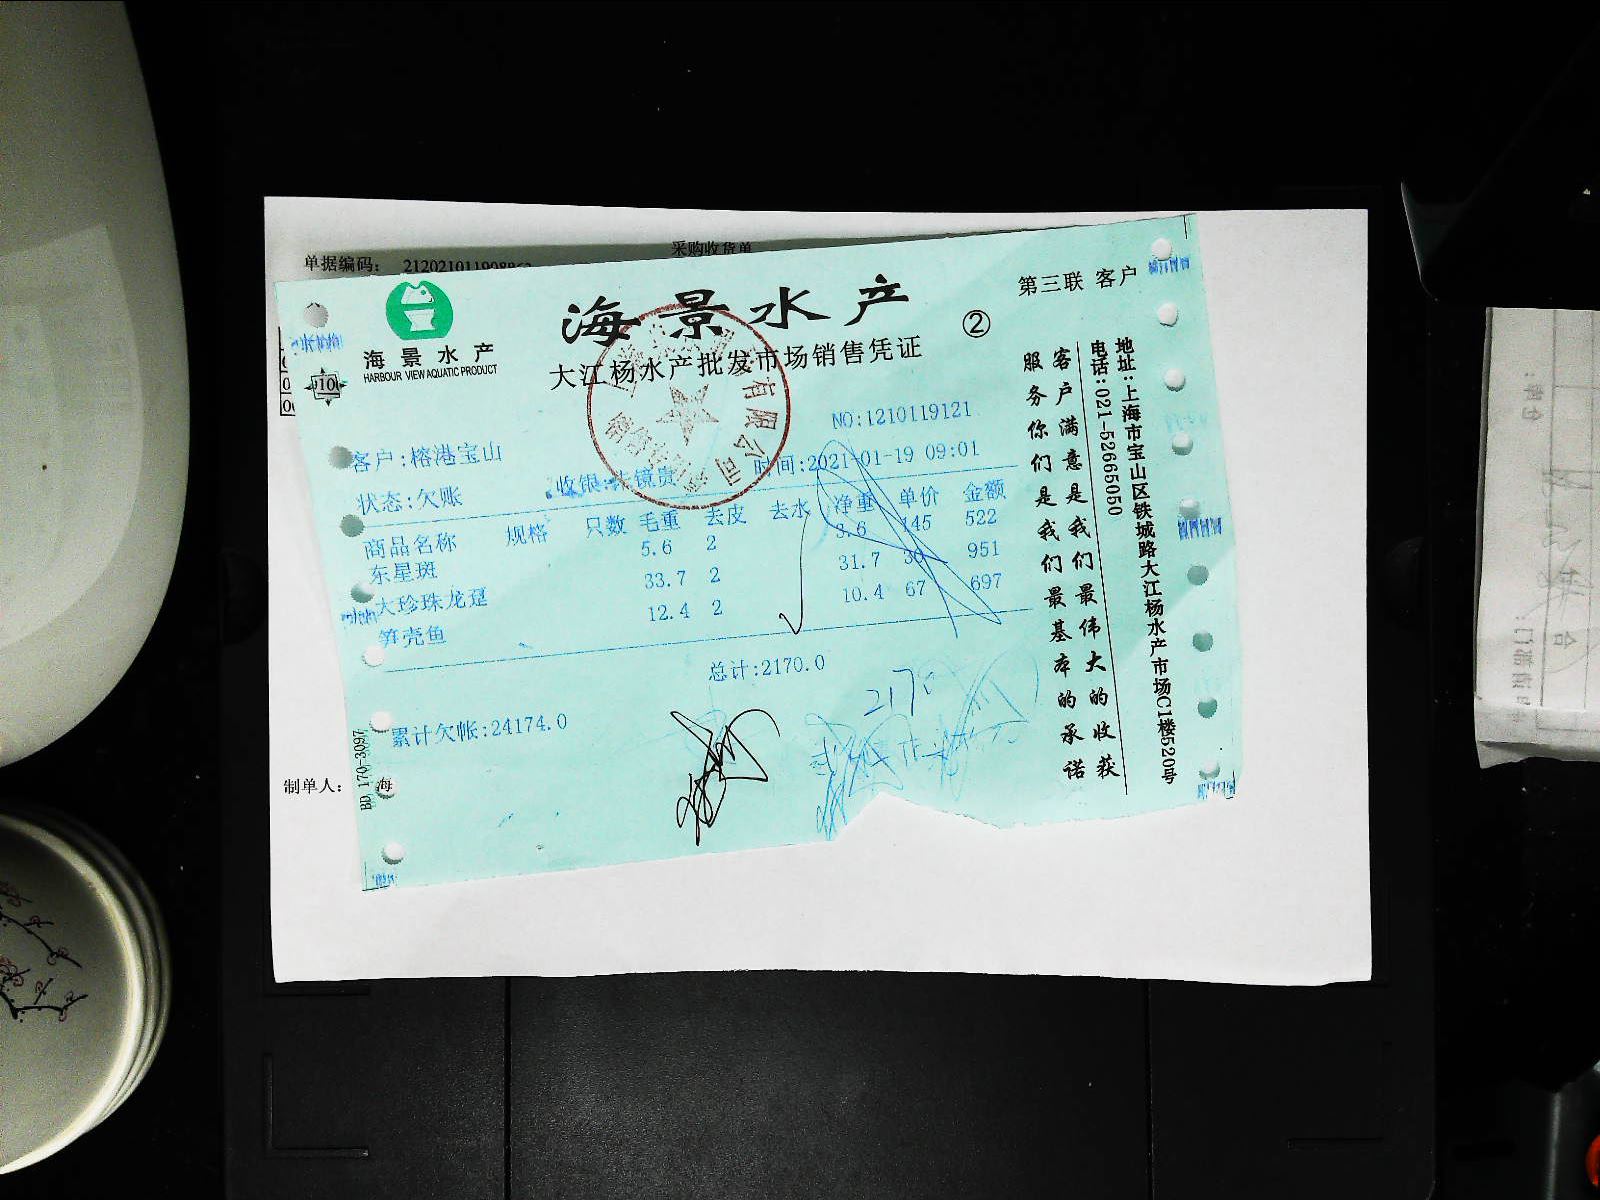 采购收货单
单据编码:
海景水产
HARBOUR VIEW AQUATIC PRODUCT
海景水产
②
第三联 客户
大江杨水产批发市场销售凭证
有限公司
NO:1210119121
客户:榕港宝山
时间:2021-01-19 09:01
状态:欠账
收银:
商品名称 规格 只数 毛重 去皮 去水 净重 单价 金额
东星斑 5.6 2 3.6 145 522
大珍珠龙趸 33.7 2 31.7 951
笋壳鱼 12.4 2 10.4 67 697
总计:2170.0
2170
累计欠帐:24174.0
客户满意是我们最伟大的收获
服务你们是我们最基本的承诺
地址:上海市宝山区铁城路大江杨水产市场C1楼520号
电话:021-52665050
BD 170-3097
制单人:
海